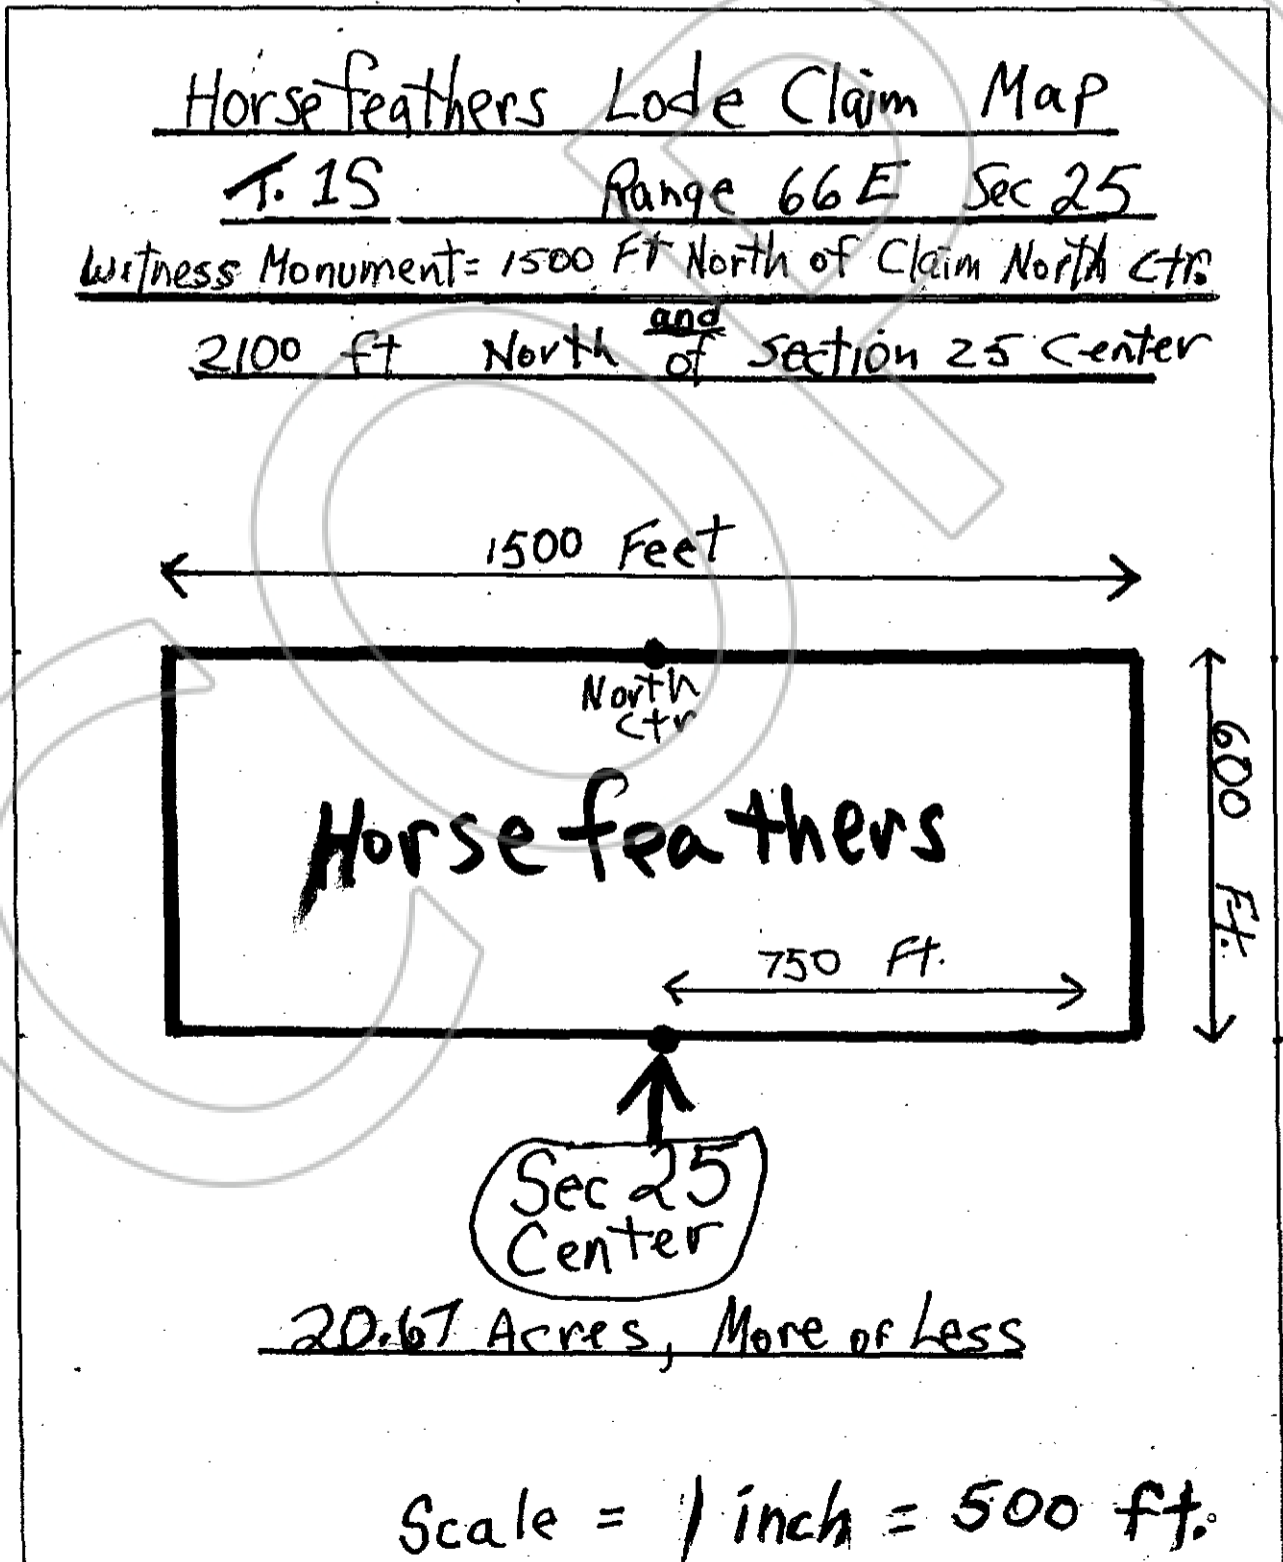 Horsefeathers Lode Claim Map
T. 1S Range 66E Sec 25
Witness Monument= 1500 Ft North of Claim North Ctr.
and
2100 ft North of Section 25 Center
1500 Feet
North
Ctr
600 Ft.
Horsefeathers
750 Ft.
Sec 25
Center
20.67 Acres, More of Less
Scale = 1 inch = 500 ft.
COPY